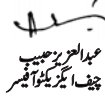 عبدالعزیز حبیب
چیف ایگزیکٹو آفیسر